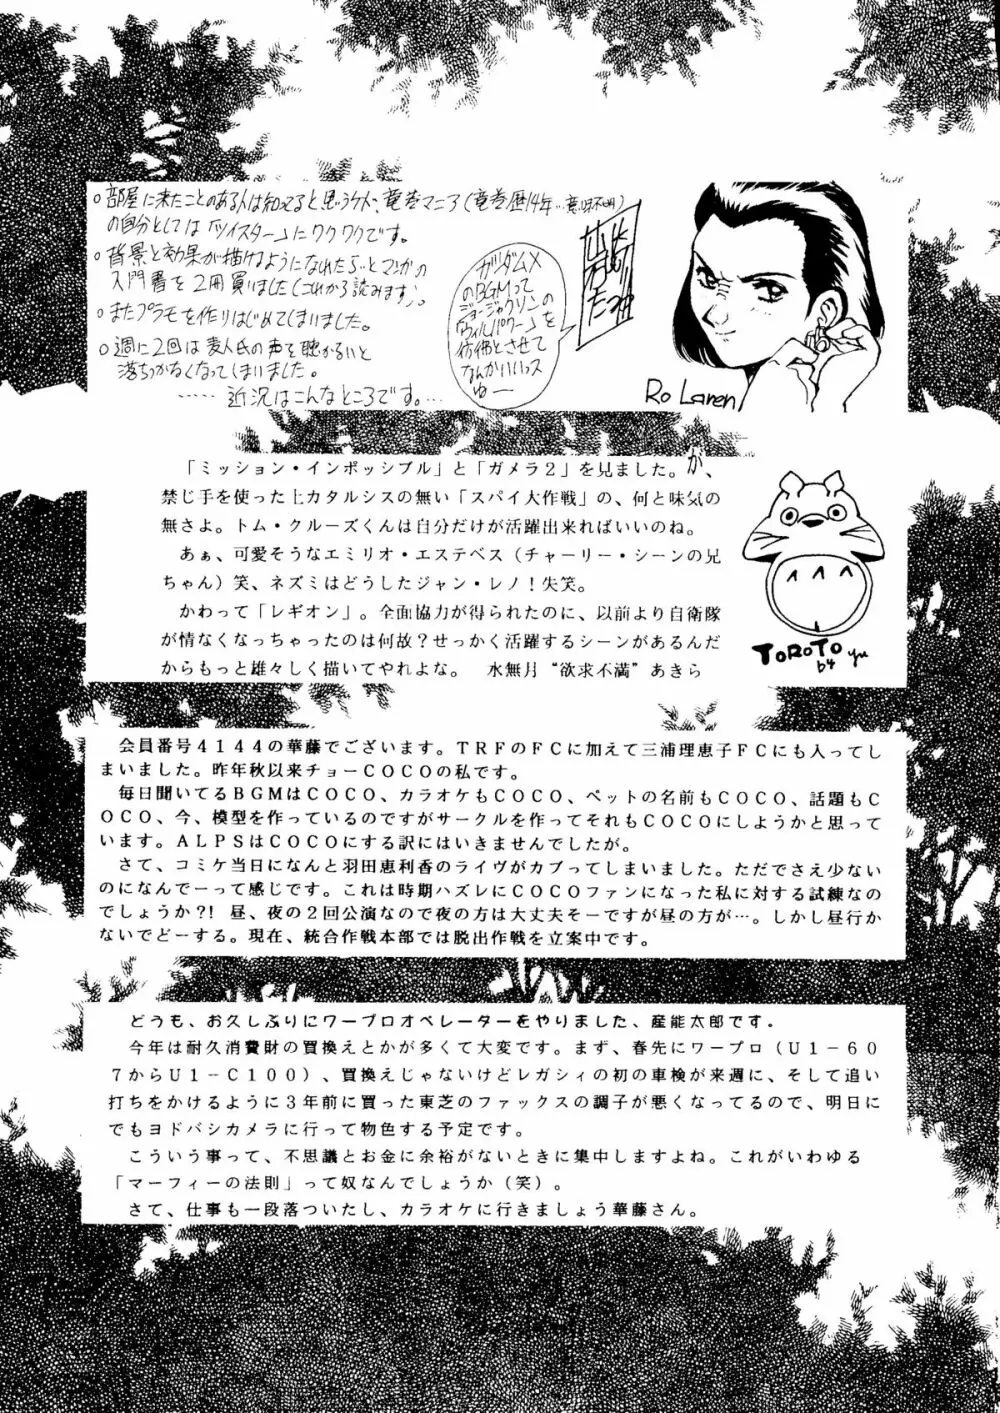 ○部屋に来たことのある人は知ってると思うケド、竜巻マニア(竜巻歴14年…意味不明)
の自分としては「ツイスター」にワクワクです。
○背景と効果が描けるようになれたらいいとマンガの
入門書を2冊買いました(これから読みます)。
○またプラモを作りはじめてしまいました。
○週に2回は麦人氏の声を聴かないと
落ちつかなくなってしまいました。
……近況はこんなところです。…
ガンダムX
のBGMって
ジョー・ジャクソンの
「ウィルパワー」を
彷彿とさせて
なんかいいっス
ゆー
Ro Laren
「ミッション・インポッシブル」と「ガメラ2」を見ました。が、
禁じ手を使った上カタルシスの無い「スパイ大作戦」の、何と味気の
無さよ。トム・クルーズくんは自分だけが活躍出来ればいいのね。
あぁ、可愛そうなエミリオ・エステベス(チャーリー・シーンの兄
ちゃん)笑、ネズミはどうしたジャン・レノ!失笑。
かわって「レギオン」。全面協力が得られたのに、以前より自衛隊
が情なくなっちゃったのは何故?せっかく活躍するシーンがあるんだ
からもっと雄々しく描いてやれよな。 水無月“欲求不満”あきら
TOROTO
by yu
会員番号4144の華藤でございます。TRFのFCに加えて三浦理恵子FCにも入ってし
まいました。昨年秋以来チョーCOCOの私です。
毎日聞いてるBGMはCOCO、カラオケもCOCO、ペットの名前もCOCO、話題もC
OCO、今、模型を作っているのですがサークルを作ってそれもCOCOにしようかと思って
います。ALPSはCOCOにする訳にはいきませんでしたが。
さて、コミケ当日になんと羽田恵利香のライヴがカブってしまいました。ただでさえ少ない
のになんでーって感じです。これは時期ハズレにCOCOファンになった私に対する試練なの
でしょうか?!昼、夜の2回公演なので夜の方は大丈夫そーですが昼の方が…。しかし昼行か
ないでどーする。現在、統合作戦本部では脱出作戦を立案中です。
どうも、お久しぶりにワープロオペレーターをやりました、産能太郎です。
今年は耐久消費財の買換えとかが多くて大変です。まず、春先にワープロ(U1-60
7からU1-C100)、買換えじゃないけどレガシィの初の車検が来週に、そして追い
打ちをかけるように3年前に買った東芝のファックスの調子が悪くなってるので、明日に
でもヨドバシカメラに行って物色する予定です。
こういう事って、不思議とお金に余裕がないときに集中しますよね。これがいわゆる
「マーフィーの法則」って奴なんでしょうか(笑)。
さて、仕事も一段落ついたし、カラオケに行きましょう華藤さん。